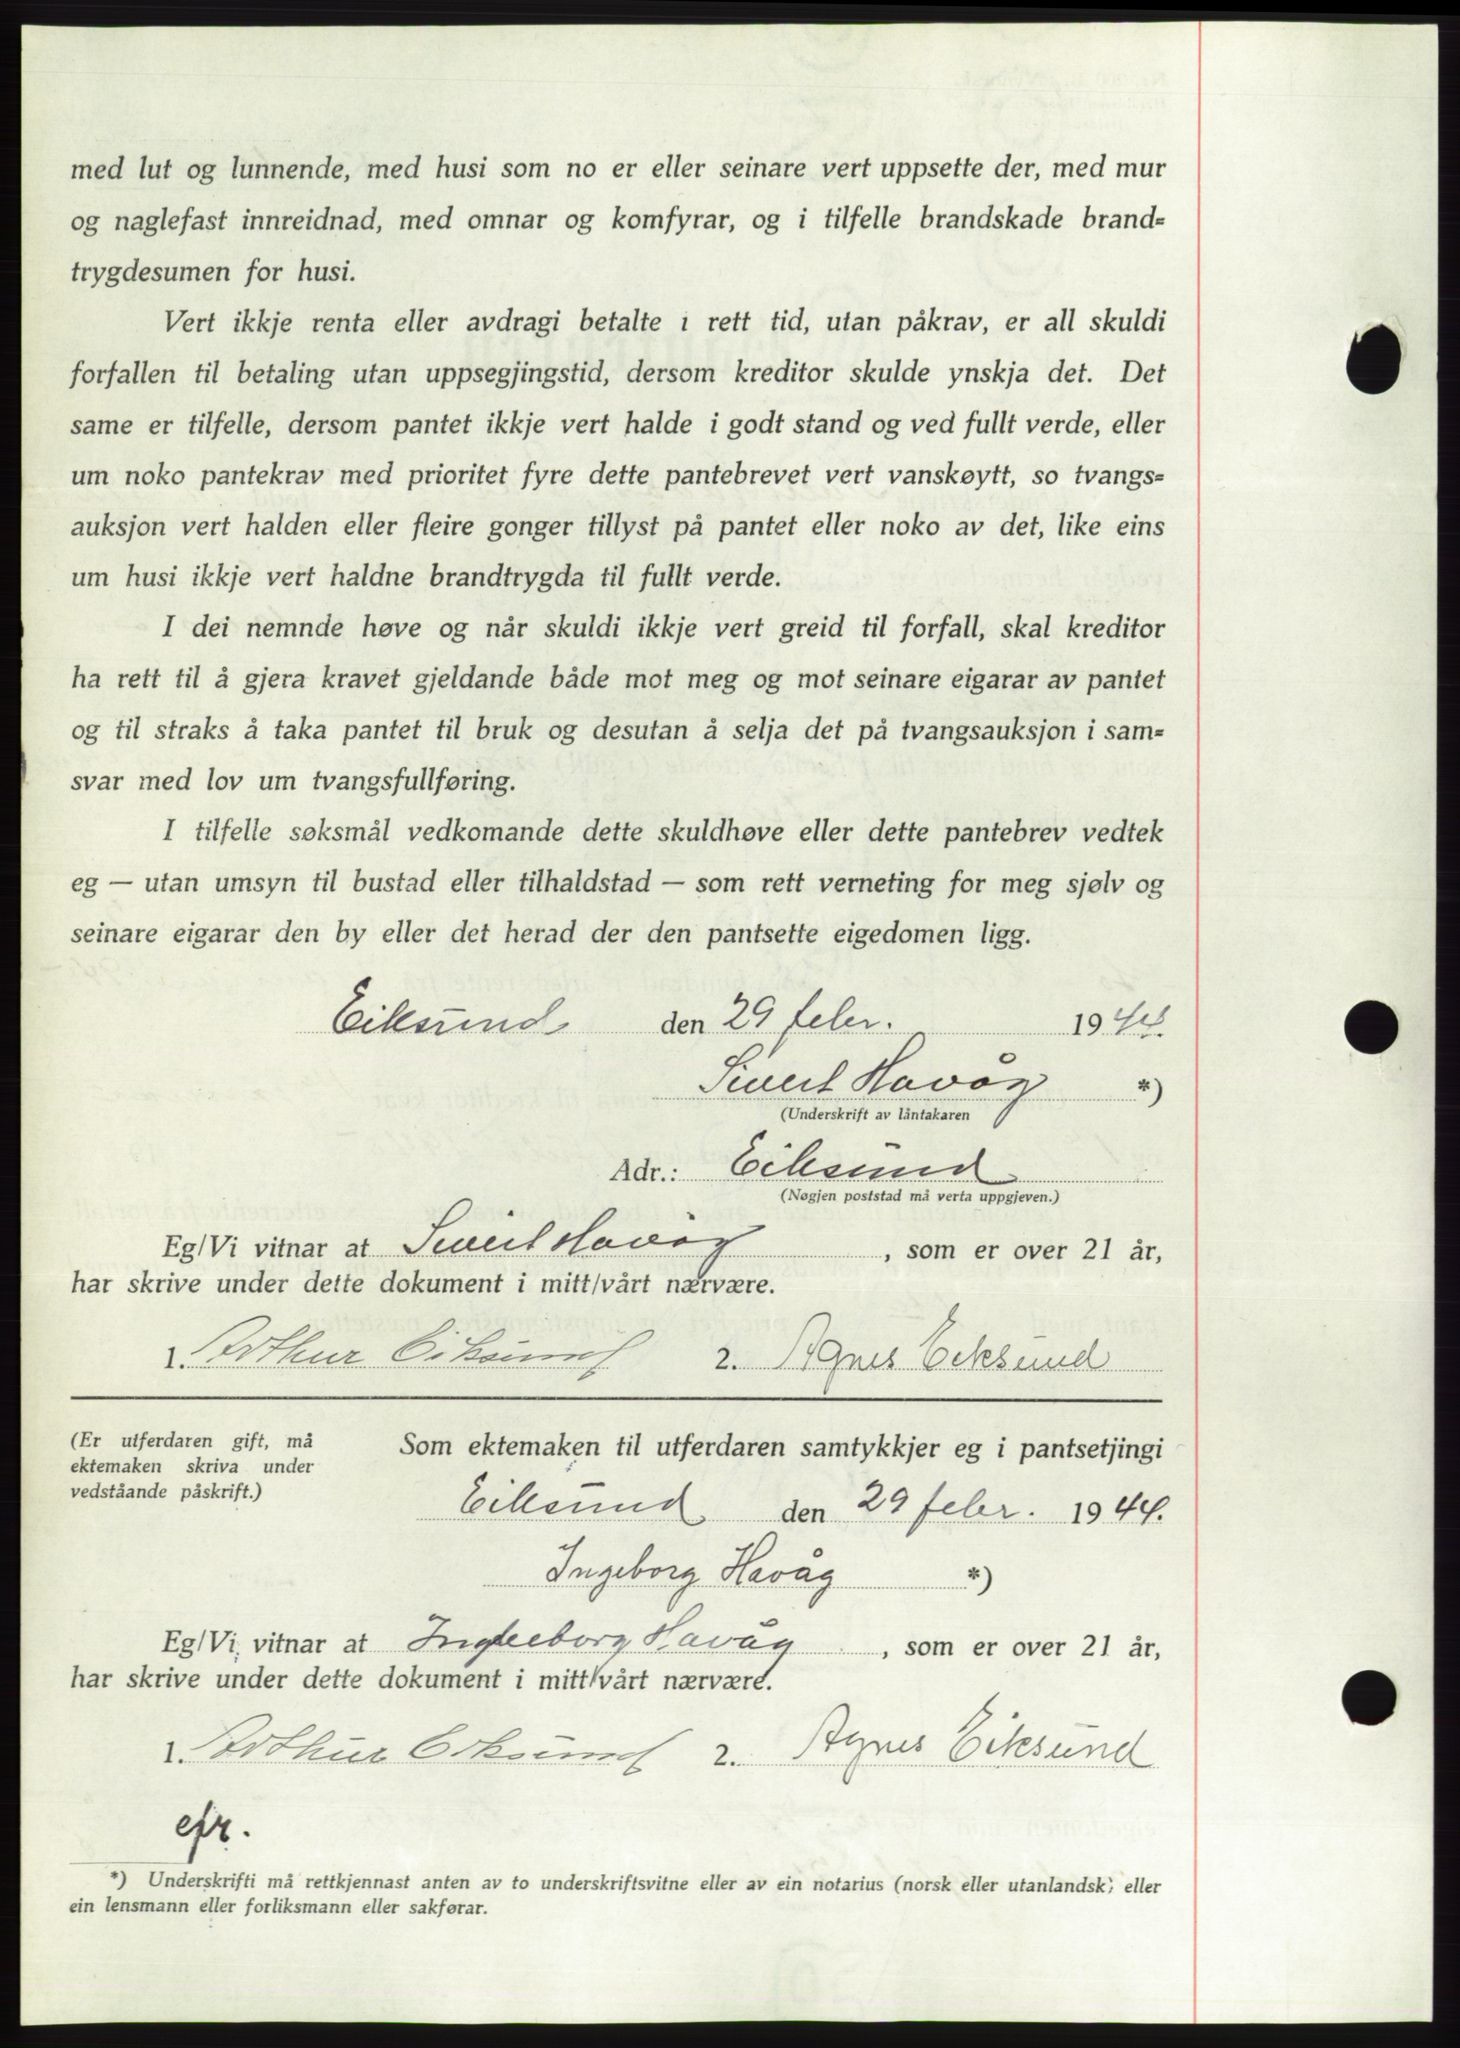 med lut og lunnende, med husi som no er eller seinare vert uppsette der, med mur
og naglefast innreidnad, med omnar og komfyrar, og i tilfelle brandskade brand=
trygdesumen for husi.
Vert ikkje renta eller avdragi betalte i rett tid, utan påkrav, er all skuldi
forfallen til betaling utan uppsegjingstid, dersom kreditor skulde ynskja det. Det
same er tilfelle, dersom pantet ikkje vert halde i godt stand og ved fullt verde, eller
um noko pantekrav med prioritet fyre dette pantebrevet vert vanskøytt, so tvangs=
auksjon vert halden eller fleire gonger tillyst på pantet eller noko av det, like eins
um husi ikkje vert haldne brandtrygda til fullt verde.
I dei nemnde høve og når skuldi ikkje vert greid til forfall, skal kreditor
ha rett til å gjera kravet gjeldande både mot meg og mot seinare eigarar av pantet
og til straks å taka pantet til bruk og desutan å selja det på tvangsauksjon i sam=
svar med lov um tvangsfullføring.
I tilfelle søksmål vedkomande dette skuldhøve eller dette pantebrev vedtek
eg — utan umsyn til bustad eller tilhaldstad — som rett verneting for meg sjølv og
seinare eigarar den by eller det herad der den pantsette eigedomen ligg.
Eiksund den 29 febr. 1944.
Sivert Havåg *)
(Underskrift av låntakaren
Adr.: Eiksund
(Nøgjen poststad må verta uppgjeven.)
Eg/Vi vitnar at Sivert Havåg, som er over 21 år,
har skrive under dette dokument i mitt/vårt nærvære.
1. Arthur Eiksund 2. Agnes Eiksund
(Er utferdaren gift, må
ektemaken skriva under
vedståande påskrift.)
Som ektemaken til utferdaren samtykkjer eg i pantsetjingi
Eiksund den 29 febr. 1944.
Ingeborg Havåg *)
Eg/Vi vitnar at Ingeborg Havåg, som er over 21 år,
har skrive under dette dokument i mitt/vårt nærvære.
1. Arthur Eiksund 2. Agnes Eiksund
efr.
*) Underskrifti må rettkjennast anten av to underskriftsvitne eller av ein notarius (norsk eller utanlandsk) eller
ein lensmann eller forliksmann eller sakførar.